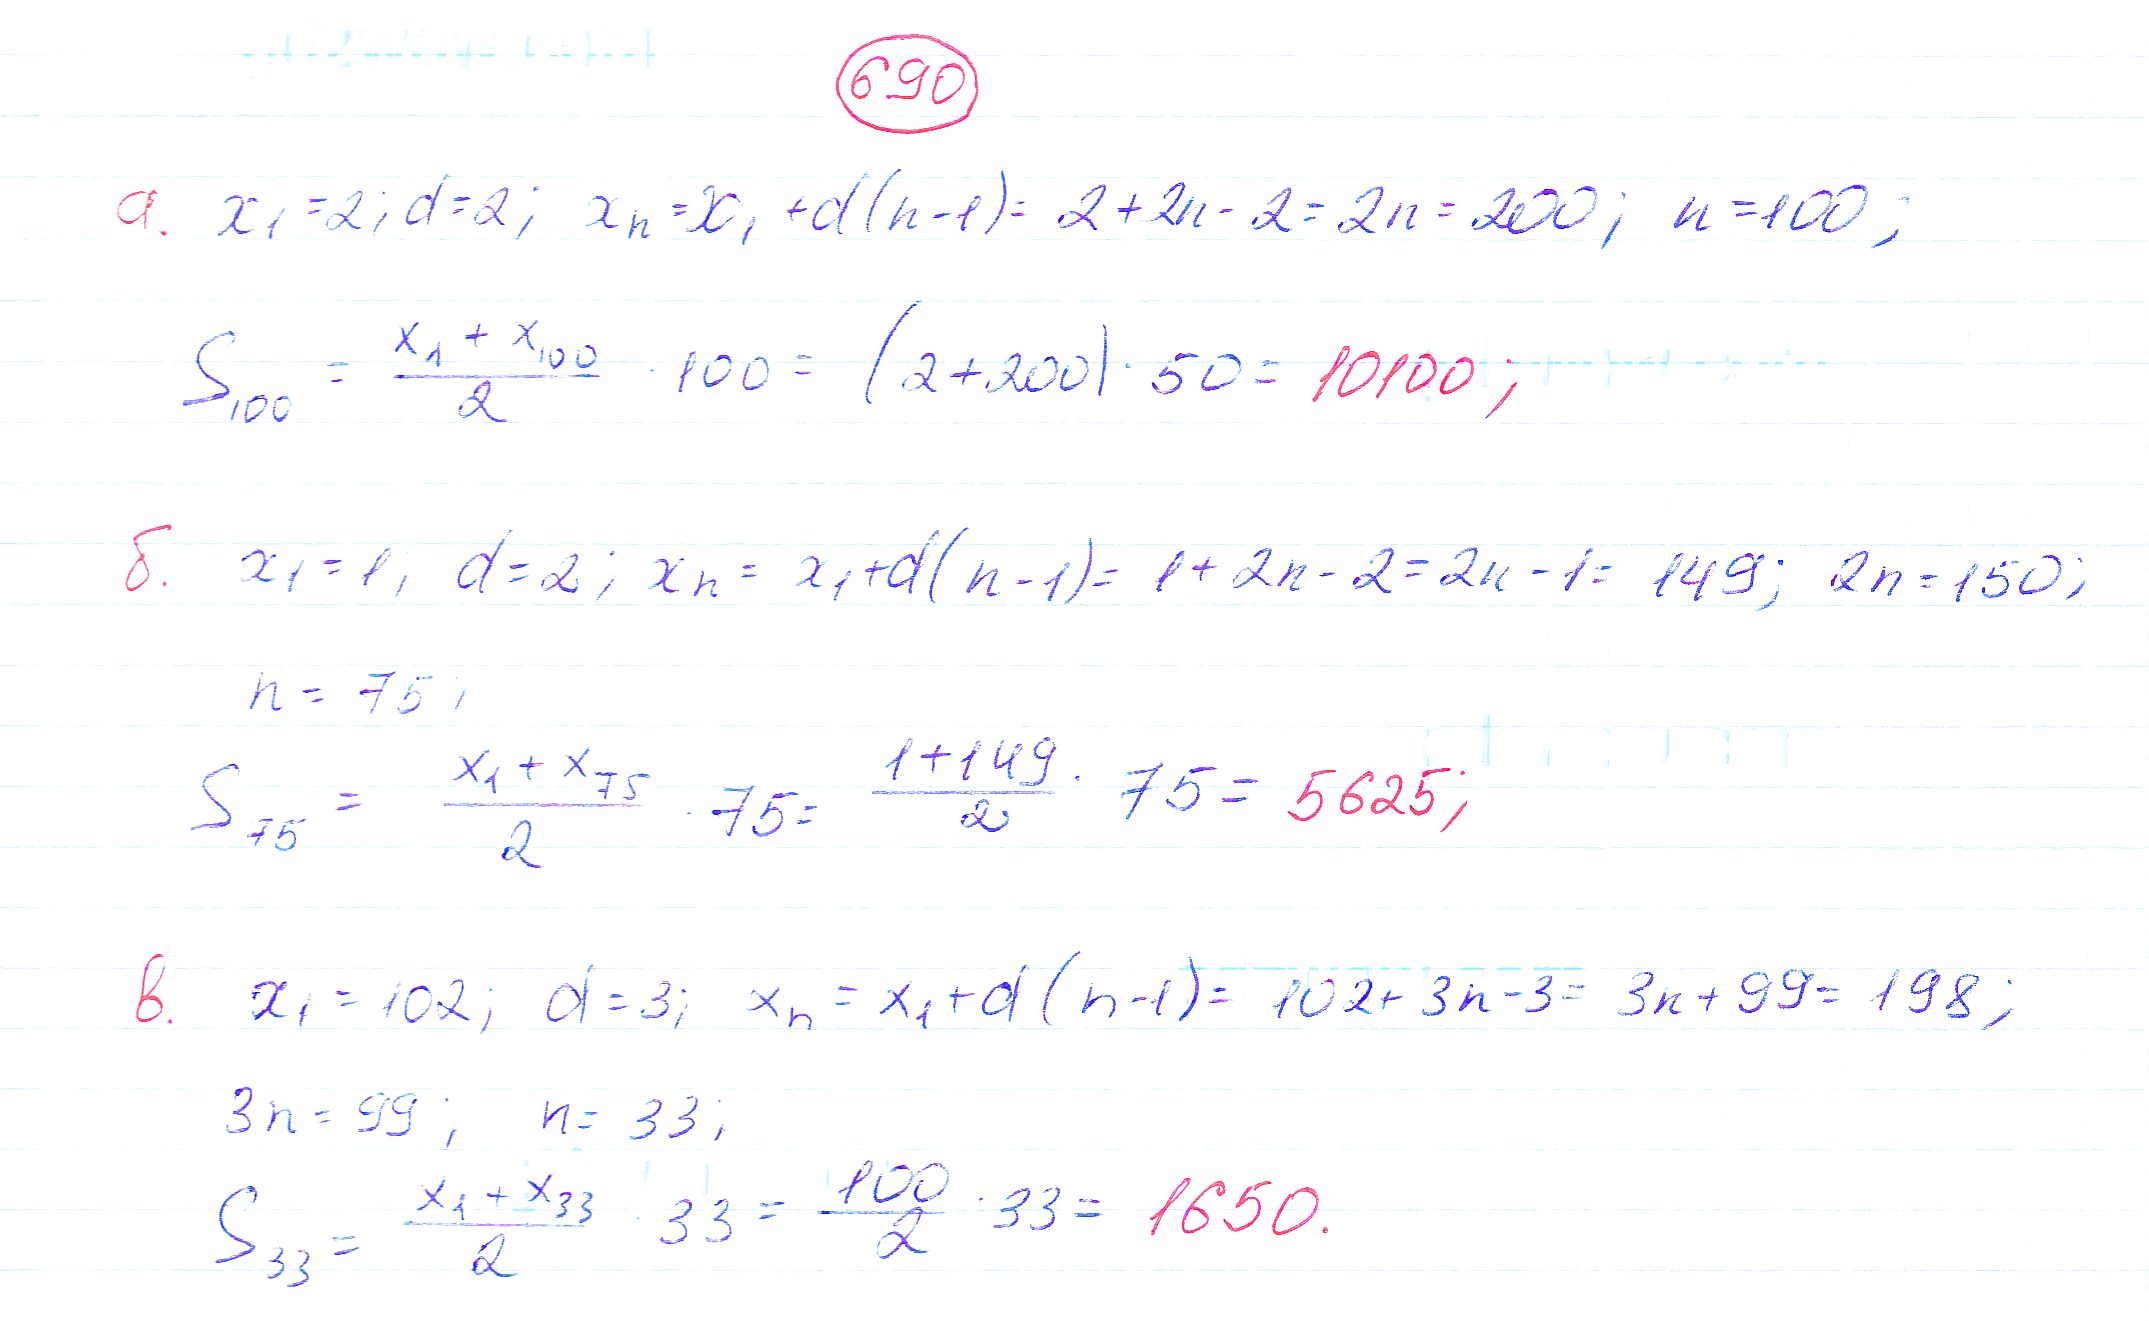 690
а. x₁=2; d=2; xₙ=x₁+d(n-1)=2+2n-2=2n=200; n=100;
S₁₀₀ = (x₁+x₁₀₀)/2 · 100 = (2+200)·50 = 10100;
б. x₁=1; d=2; xₙ=x₁+d(n-1)=1+2n-2=2n-1=149; 2n=150;
n=75;
S₇₅ = (x₁+x₇₅)/2 · 75 = (1+149)/2 · 75 = 5625;
в. x₁=102; d=3; xₙ=x₁+d(n-1)=102+3n-3=3n+99=198;
3n=99; n=33;
S₃₃ = (x₁+x₃₃)/2 · 33 = 100/2 · 33 = 1650.